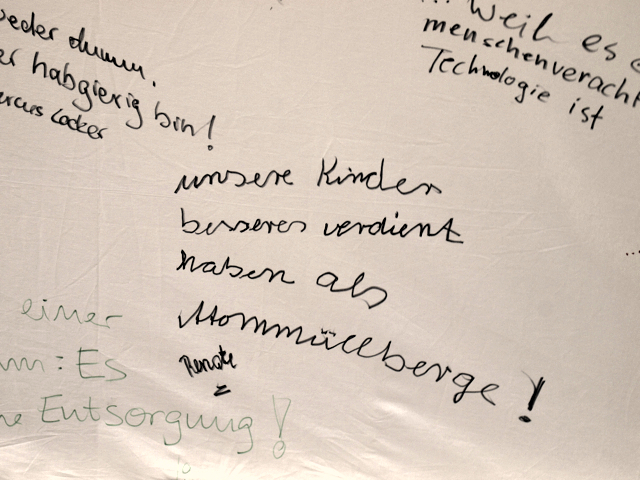 weder dumm.
habgierig bin!
Locker
... Weil es
menschenveracht
Technologie ist
unsere Kinder
besseres verdient
haben als
Atommüllberge!
Renate
einer
Es
Entsorgung!